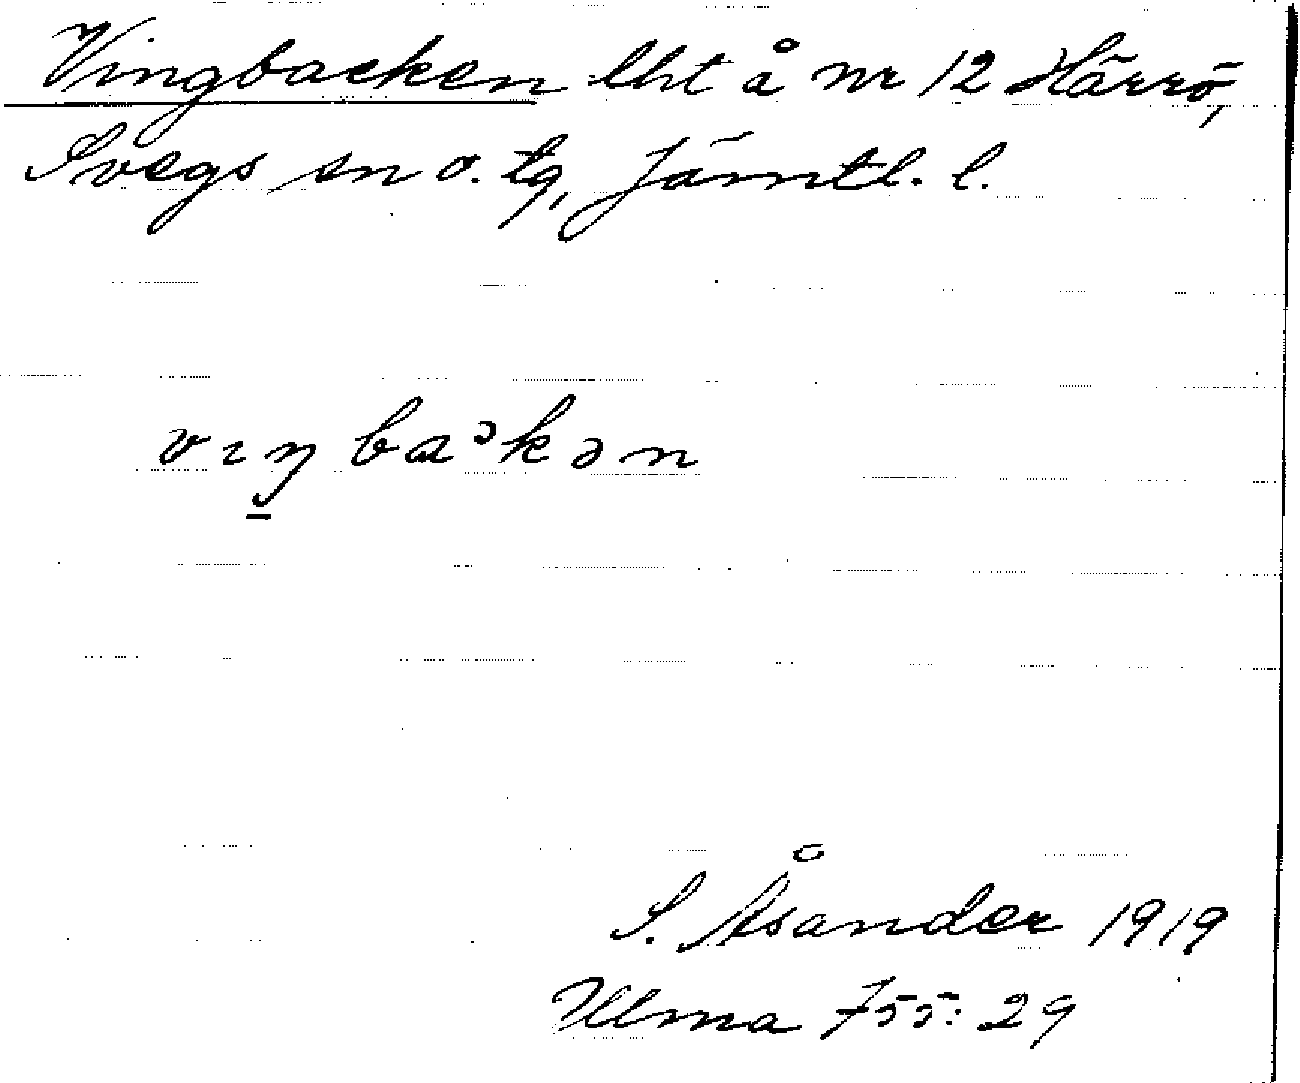 Vingbacken lht å nr 12 Härrö,
Svegs sn o. tg, Jämtl. l.
vıŋbaᵊkən
S. Åsander 1919
Ulma 755: 29